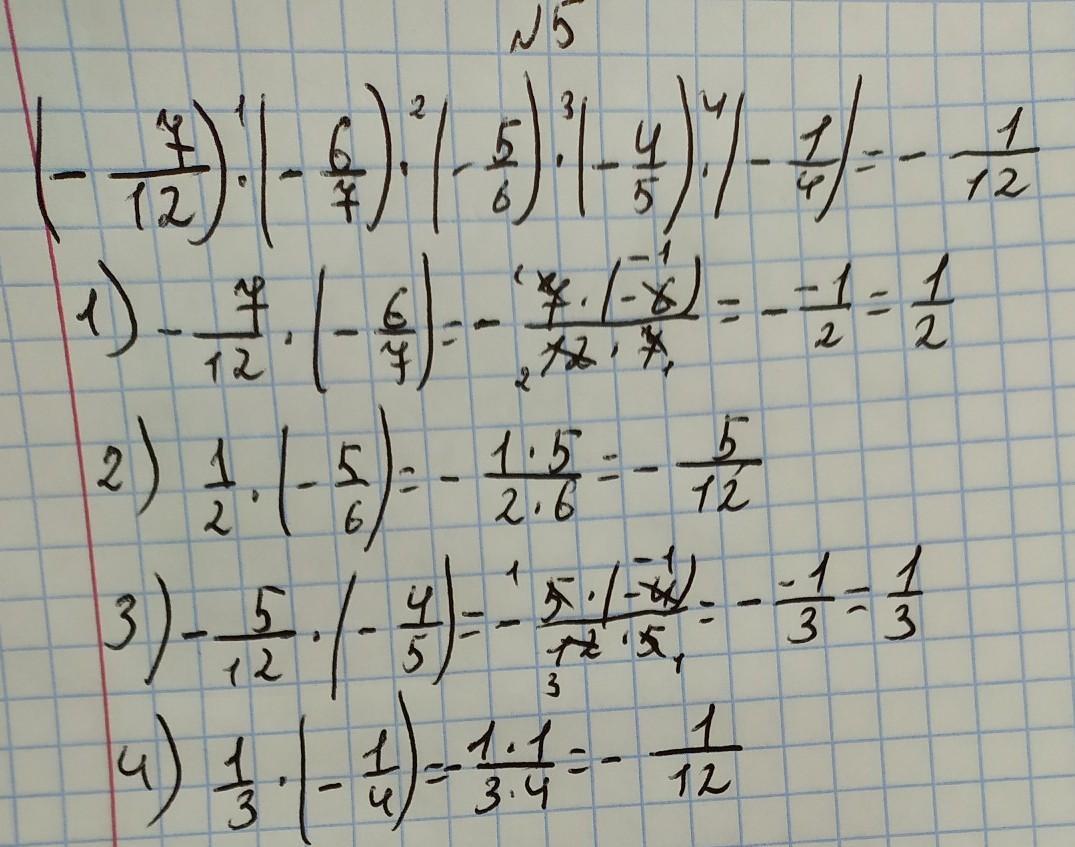 №5
(- 7/12) ·¹ (- 6/7) ·² (- 5/6) ·³ (- 4/5) ·⁴ (- 1/4) = - 1/12
1) - 7/12 · (- 6/7) = - 7 · (-6)/12 · 7 = - -1/2 = 1/2
2) 1/2 · (- 5/6) = - 1·5/2·6 = - 5/12
3) - 5/12 · (- 4/5) = - 5 · (-4)/12 · 5 = - -1/3 = 1/3
4) 1/3 · (- 1/4) = - 1·1/3·4 = - 1/12